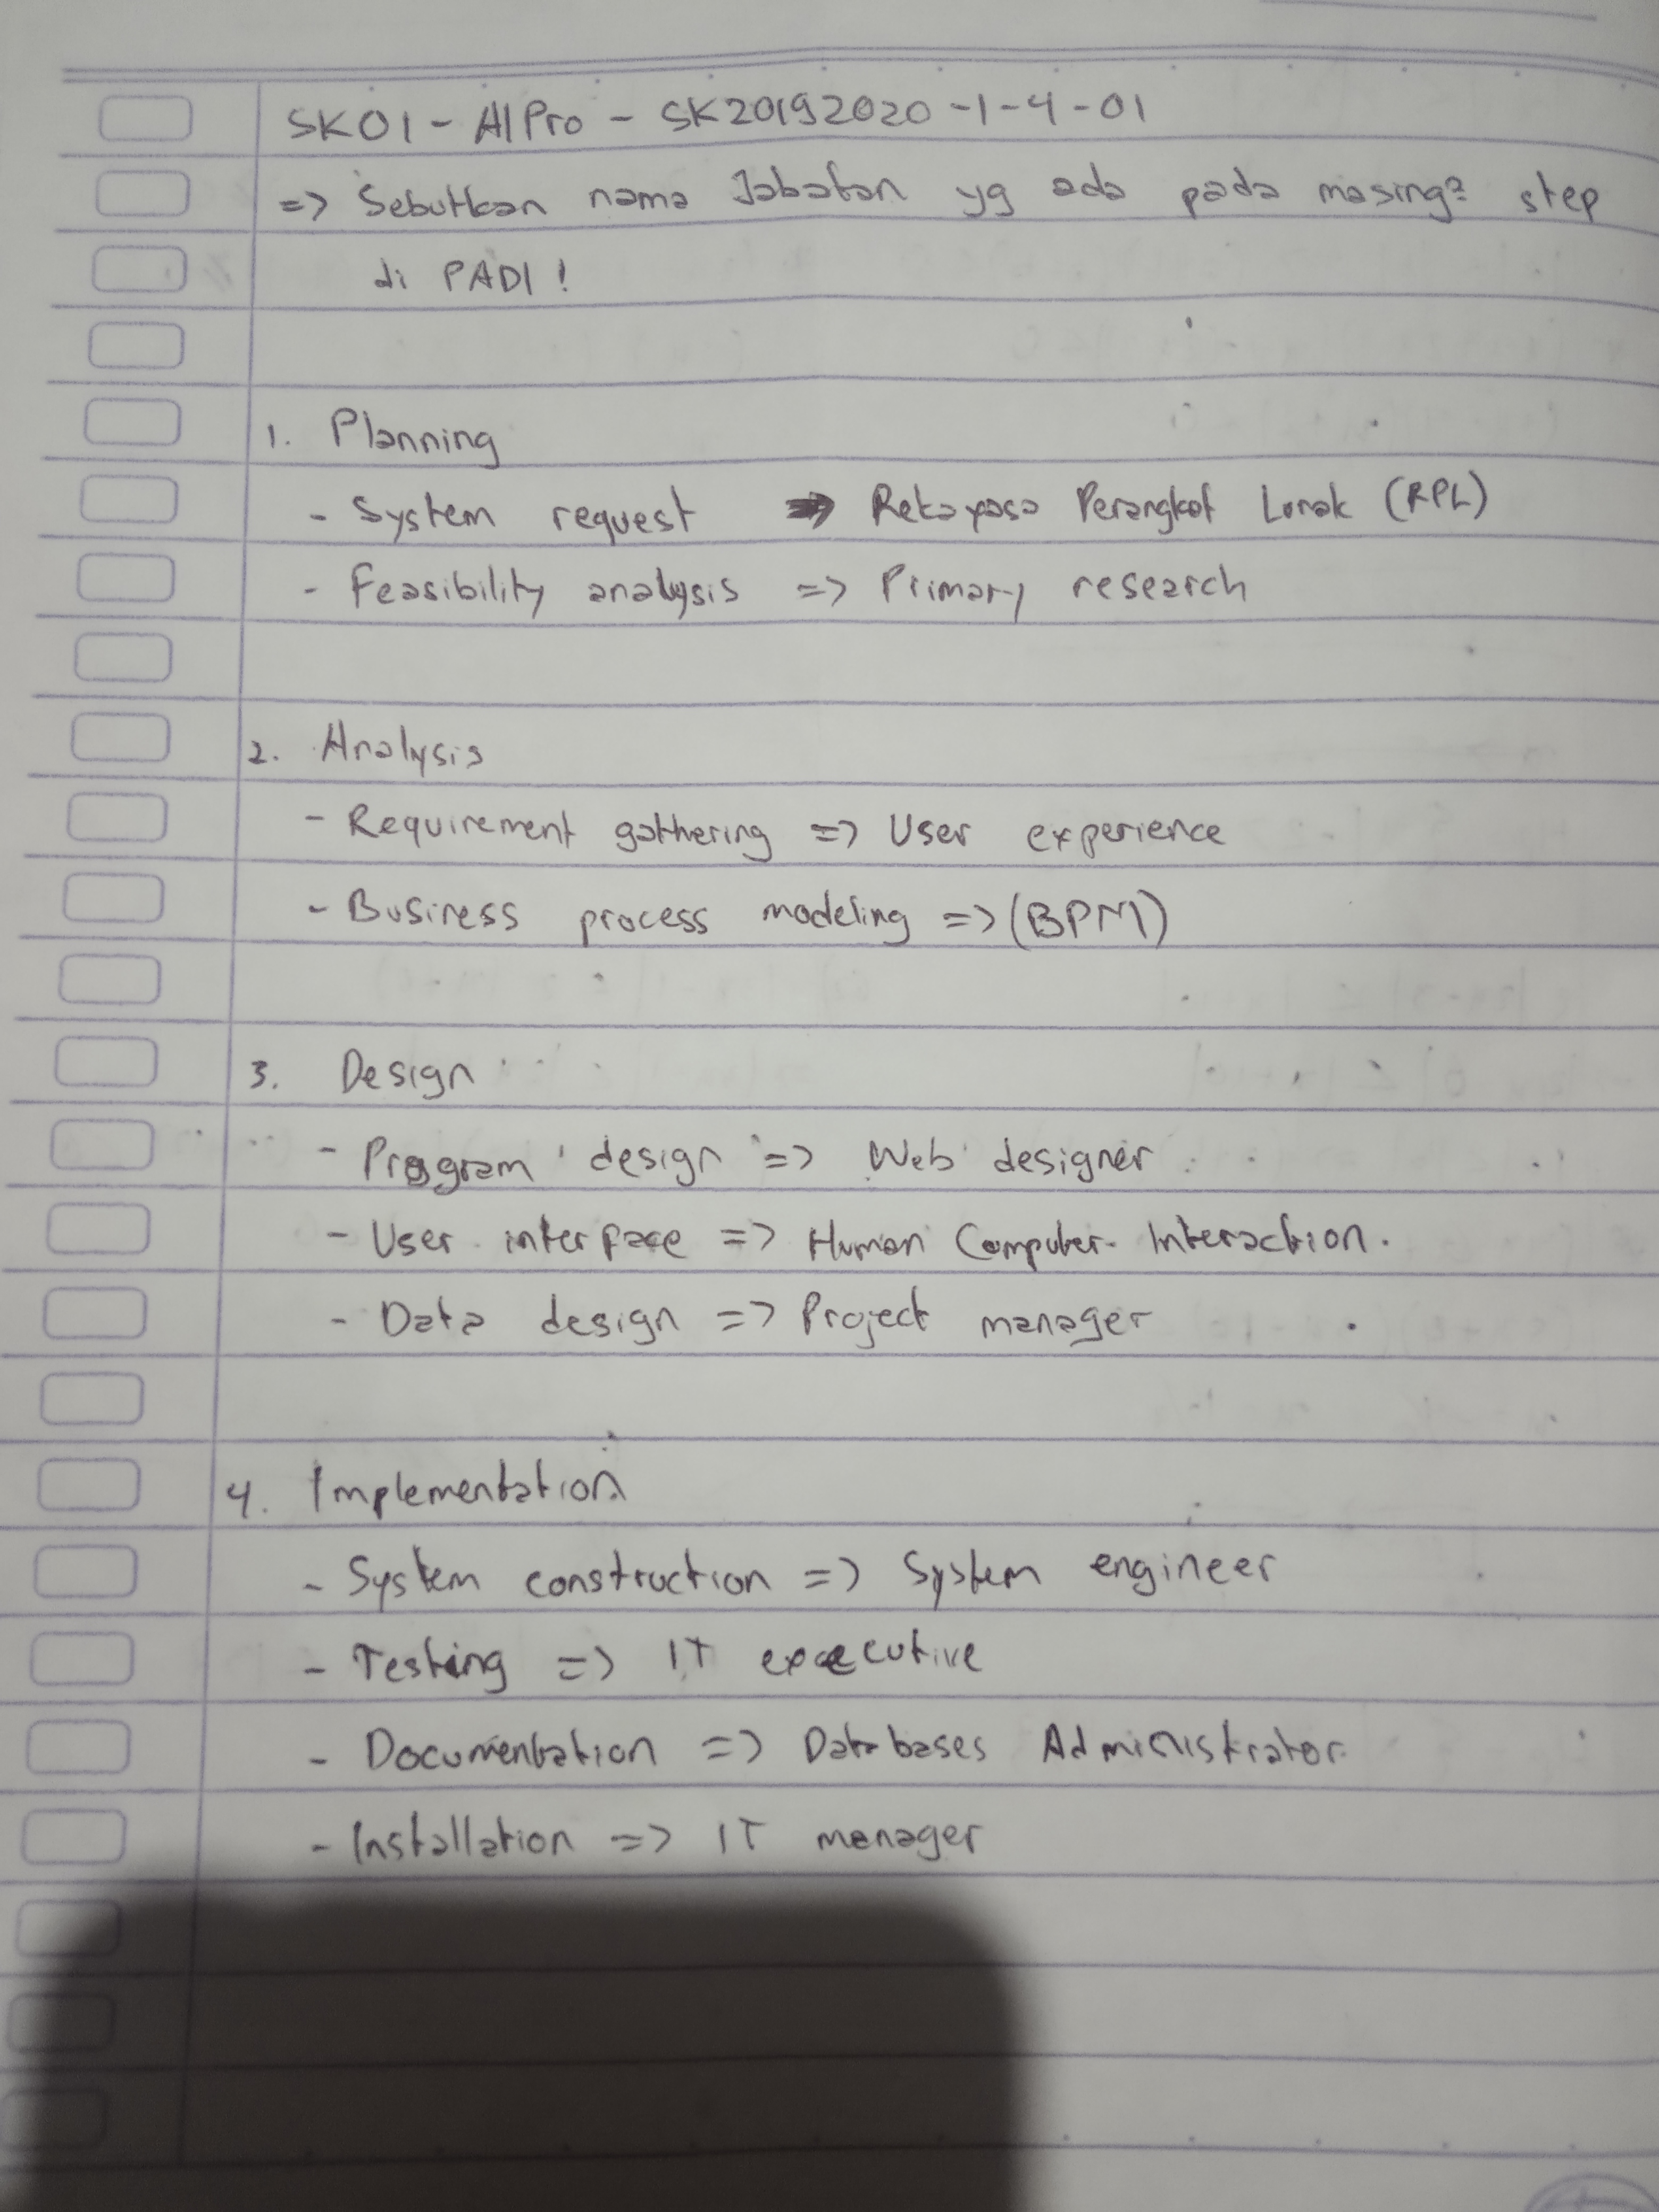 SK01 - AlPro - SK20192020 -1-4-01
=> Sebutkan nama Jabatan yg ada pada masing² step
di PADI !
1. Planning
- System request => Rekayasa Perangkat Lunak (RPL)
- Feasibility analysis => Primary research
2. Analysis
- Requirement gathering => User experience
- Business process modeling => (BPM)
3. Design
- Program design => Web designer
- User interface => Human Computer Interaction.
- Data design => Project manager
4. Implementation
- System construction => System engineer
- Testing => IT executive
- Documentation => Databases Administrator
- Installation => IT manager